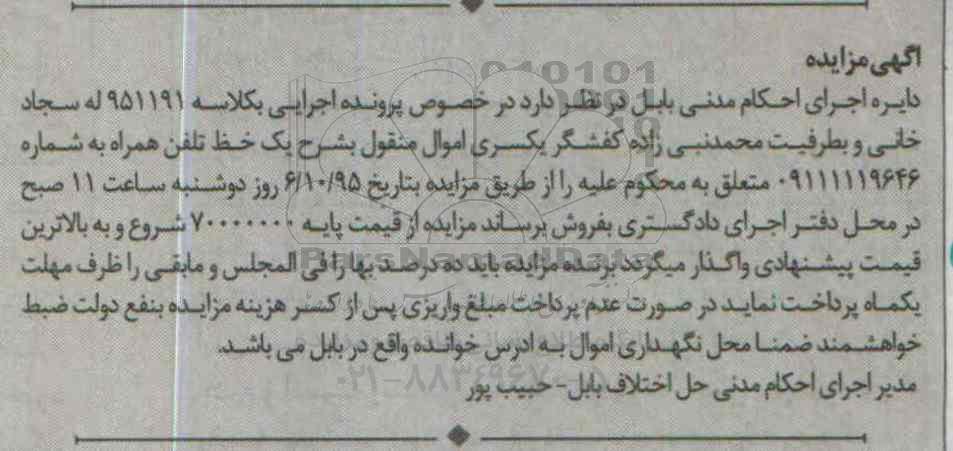 آگهی مزایده
دایره اجرای احکام مدنی بابل در نظر دارد در خصوص پرونده اجرایی بکلاسه ۹۵۱۱۹۱ له سجاد
خانی و بطرفیت محمدنبی زاده کفشگر یکسری اموال منقول بشرح یک خظ تلفن همراه به شماره
۰۹۱۱۱۱۱۹۶۴۶ متعلق به محکوم علیه را از طریق مزایده بتاریخ ۶/۱۰/۹۵ روز دوشنبه ساعت ۱۱ صبح
در محل دفتر اجرای دادگستری بفروش برساند مزایده از قیمت پایه ۷۰۰۰۰۰۰۰ شروع و به بالاترین
قیمت پیشنهادی واگذار میگردد برنده مزایده باید ده درصد بها را فی المجلس و مابقی را ظرف مهلت
یکماه پرداخت نماید در صورت عدم پرداخت مبلغ واریزی پس از کسر هزینه مزایده بنفع دولت ضبط
خواهشمند ضمنا محل نگهداری اموال به ادرس خوانده واقع در بابل می باشد.
مدیر اجرای احکام مدنی حل اختلاف بابل - حبیب پور
ParsNamadData
۰۲۱-۸۸۳۴۹۶۷۰-۵